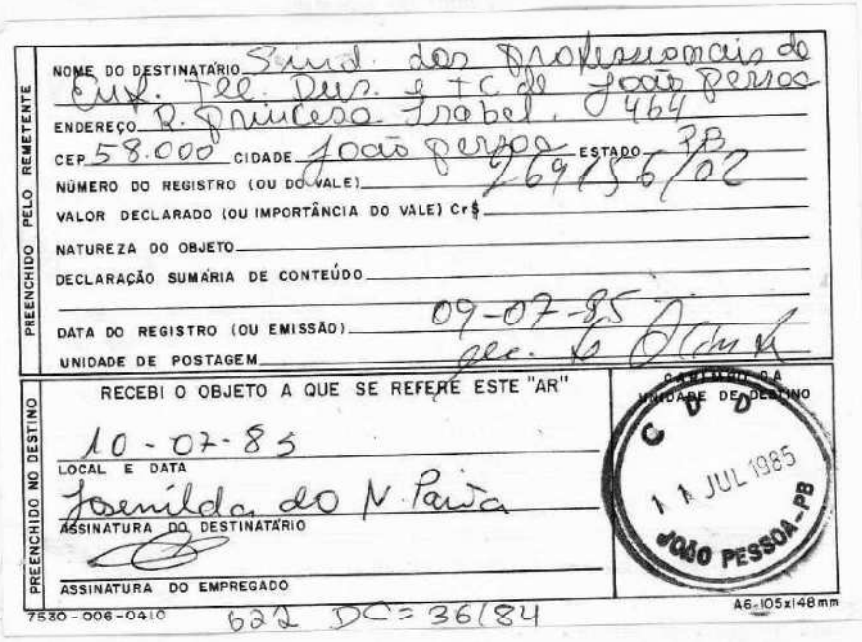 PREENCHIDO PELO REMETENTE
NOME DO DESTINATÁRIO Sind. dos professionais de
Enf. Tec. Dus. e TC de João Pessoa
ENDEREÇO R. Princesa Isabel, 464
CEP 58.000 CIDADE João Pessoa ESTADO PB
NÚMERO DO REGISTRO (OU DO VALE) 269156/02
VALOR DECLARADO (OU IMPORTÂNCIA DO VALE) Cr$
NATUREZA DO OBJETO
DECLARAÇÃO SUMÁRIA DE CONTEÚDO
DATA DO REGISTRO (OU EMISSÃO) 09-07-85
UNIDADE DE POSTAGEM
PREENCHIDO NO DESTINO
RECEBI O OBJETO A QUE SE REFERE ESTE "AR"
10-07-85
LOCAL E DATA
Josenilda do N. Paiva
ASSINATURA DO DESTINATÁRIO
ASSINATURA DO EMPREGADO
CARIMBO DA
UNIDADE DE DESTINO
CDD
11 JUL 1985
JOÃO PESSOA-PB
7530-006-0410
622 DC=36/84
A6-105x148mm